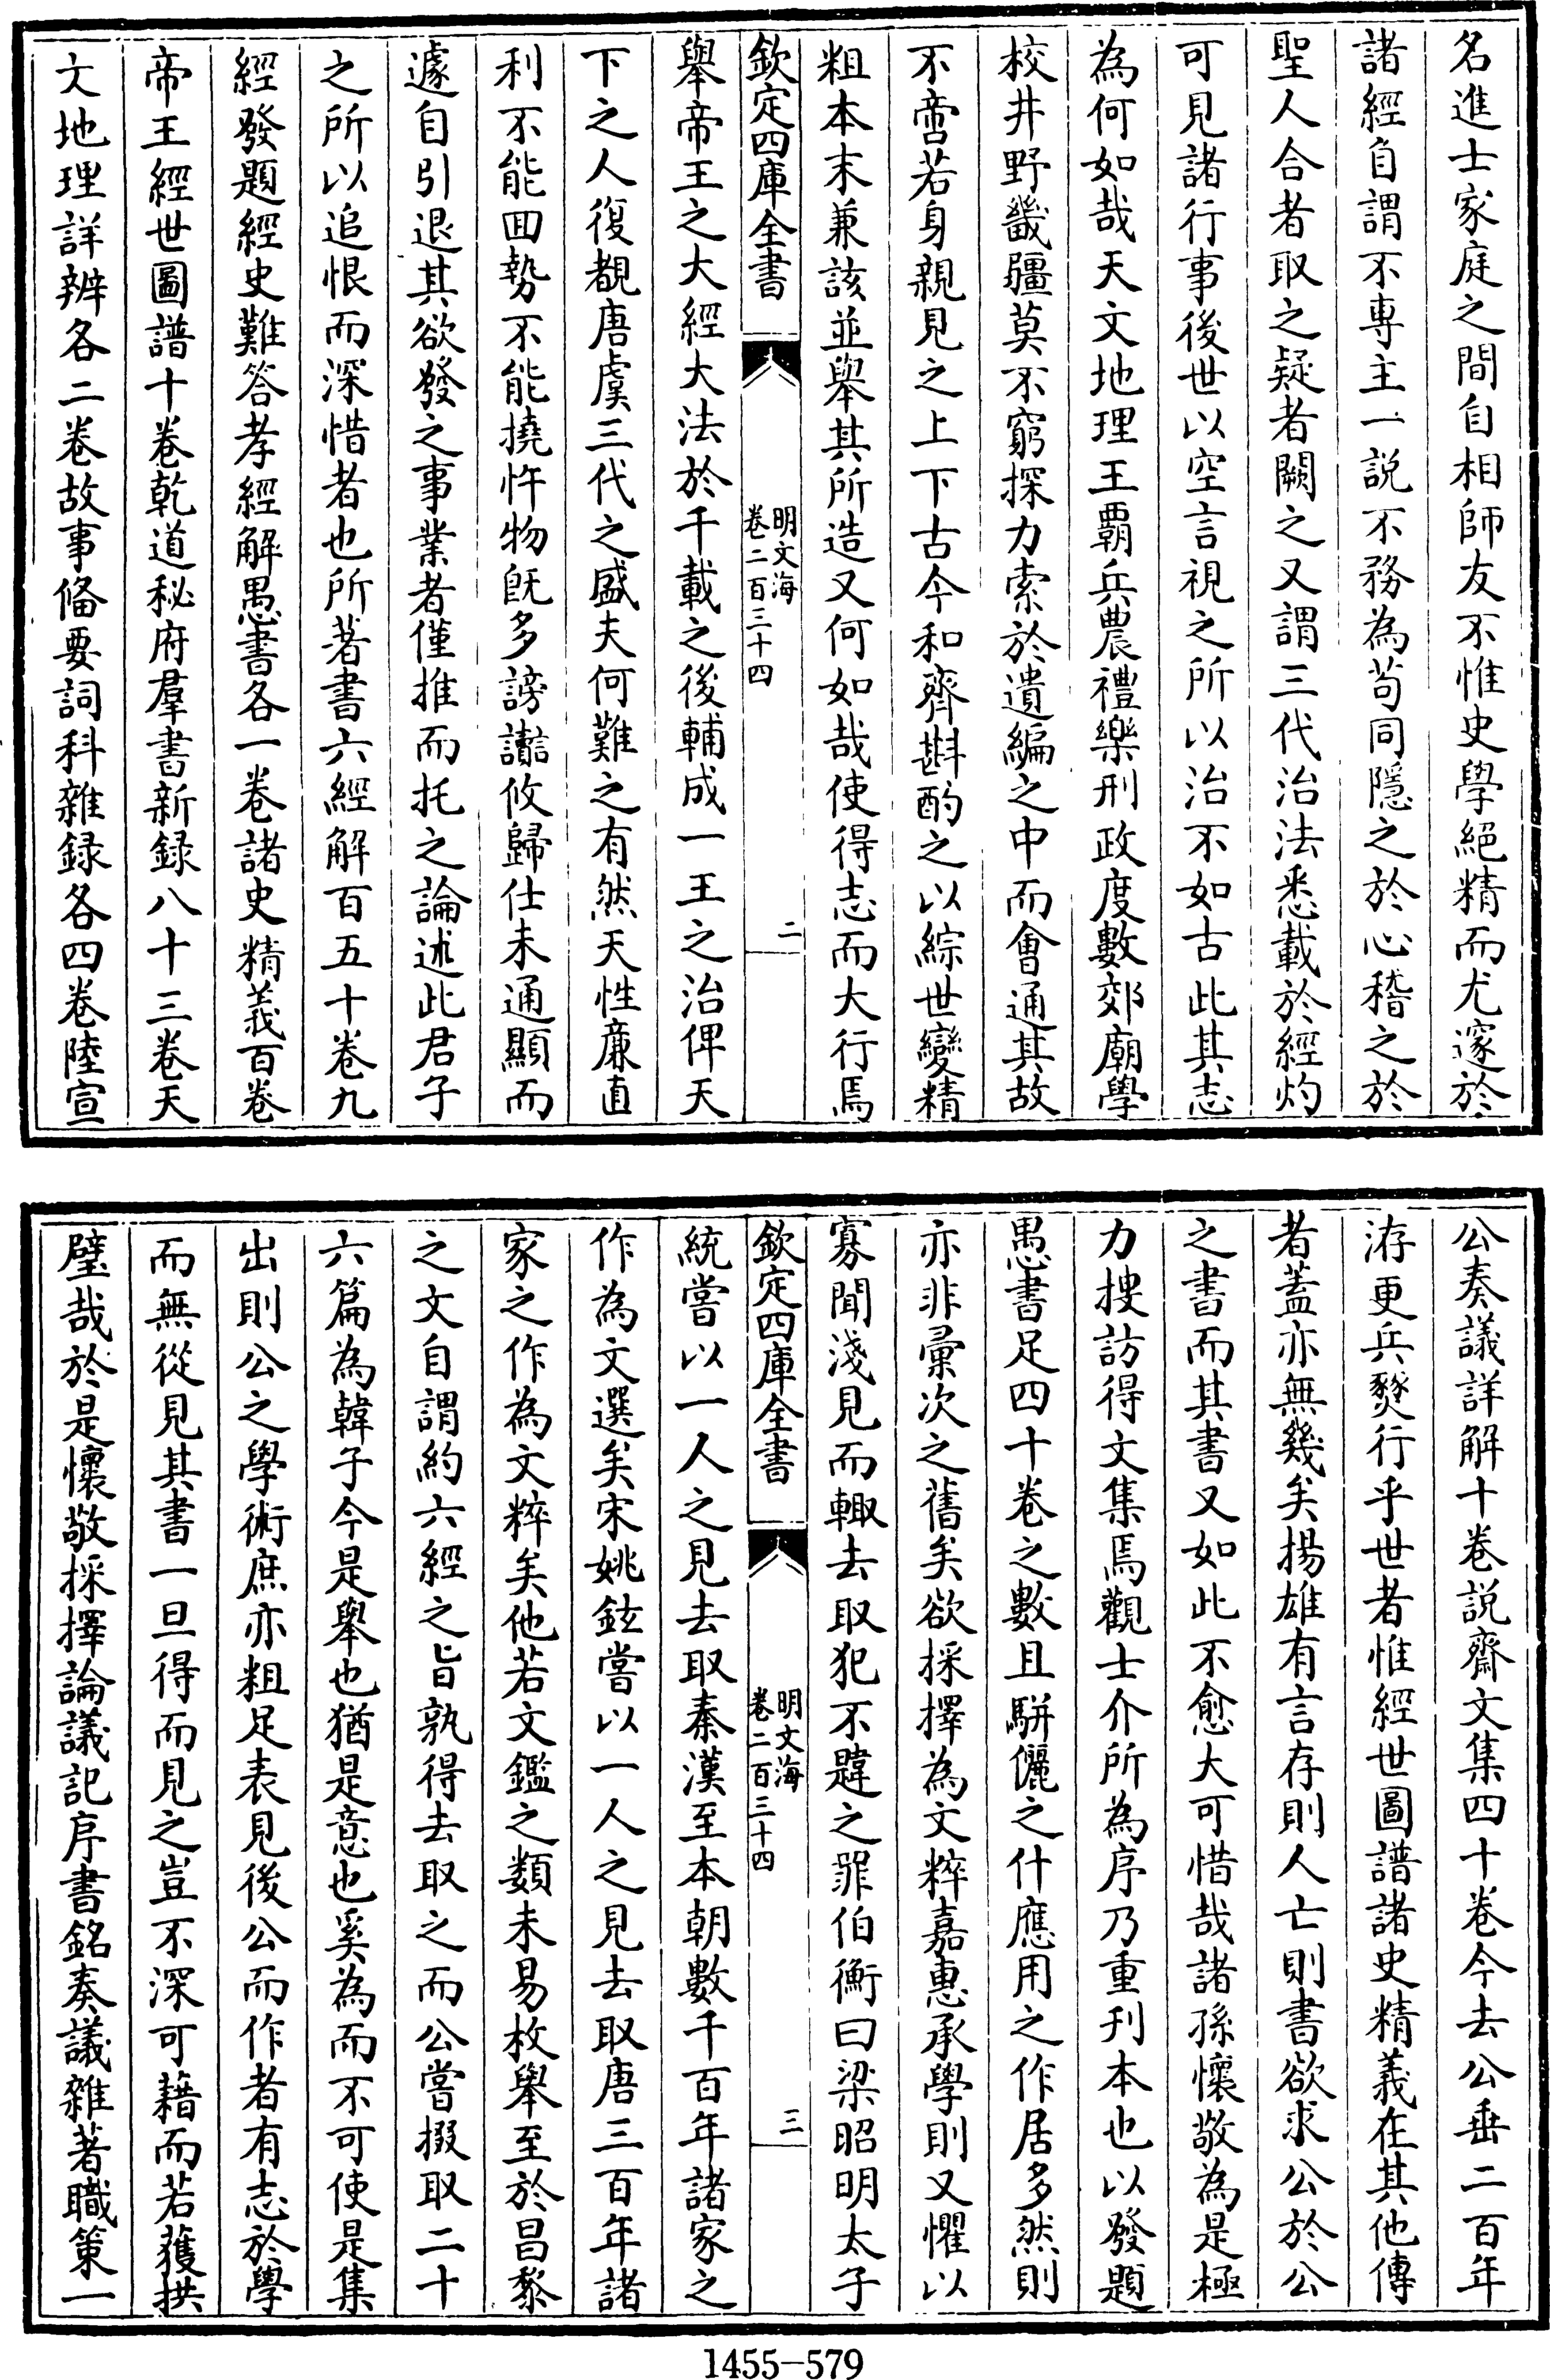 名進士家庭之間自相師友不惟史學絕精而尤邃於
諸經自謂不專主一説不務為苟同隱之於心稽之於
聖人合者取之疑者闕之又謂三代治法悉載於經灼
可見諸行事後世以空言視之所以治不如古此其志
為何如哉天文地理王霸兵農禮樂刑政度數郊廟學
校井野畿疆莫不窮探力索於遺編之中而會通其故
不啻若身親見之上下古今和齊斟酌之以綜世變精
粗本末兼該並舉其所造又何如哉使得志而大行焉
欽定四庫全書
明文海
卷二百三十四
二
舉帝王之大經大法於千載之後輔成一王之治俾天
下之人復覩唐虞三代之盛夫何難之有然天性廉直
利不能回勢不能撓忤物既多謗讟攸歸仕未通顯而
遽自引退其欲發之事業者僅推而托之論述此君子
之所以追恨而深惜者也所著書六經解百五十卷九
經發題經史難答孝經解愚書各一卷諸史精義百卷
帝王經世圖譜十卷乾道秘府羣書新録八十三卷天
文地理詳辨各二卷故事備要詞科雜録各四卷陸宣
公奏議詳解十卷説齋文集四十卷今去公垂二百年
洊更兵燹行乎世者惟經世圖譜諸史精義在其他傳
者蓋亦無幾矣揚雄有言存則人亡則書欲求公於公
之書而其書又如此不愈大可惜哉諸孫懷敬為是極
力搜訪得文集焉觀士介所為序乃重刊本也以發題
愚書足四十卷之數且駢儷之什應用之作居多然則
亦非彙次之舊矣欲採擇為文粹嘉惠承學則又懼以
寡聞淺見而輙去取犯不韙之罪伯衡曰梁昭明太子
欽定四庫全書
明文海
卷二百三十四
三
統嘗以一人之見去取秦漢至本朝數千百年諸家之
作為文選矣宋姚鉉嘗以一人之見去取唐三百年諸
家之作為文粹矣他若文鑑之類未易枚舉至於昌黎
之文自謂約六經之旨孰得去取之而公嘗掇取二十
六篇為韓子今是舉也猶是意也奚為而不可使是集
出則公之學術庶亦粗足表見後公而作者有志於學
而無從見其書一旦得而見之豈不深可藉而若獲拱
璧哉於是懷敬採擇論議記序書銘奏議雜著職策一
1455-579